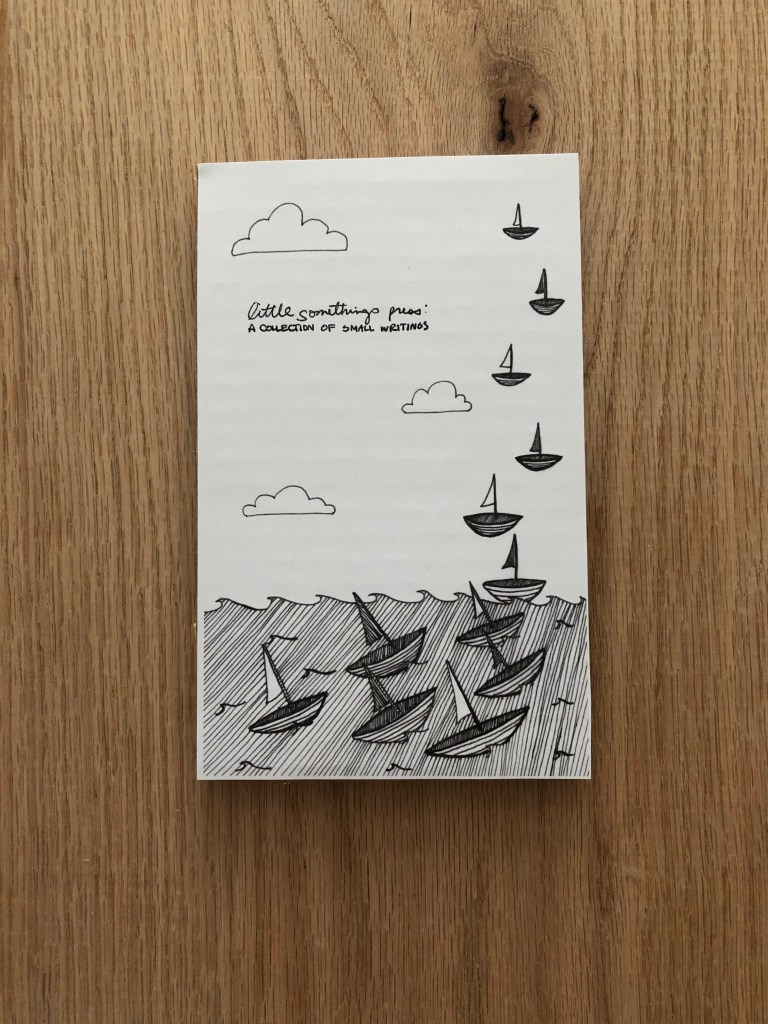 little somethings press:
A COLLECTION OF SMALL WRITINGS